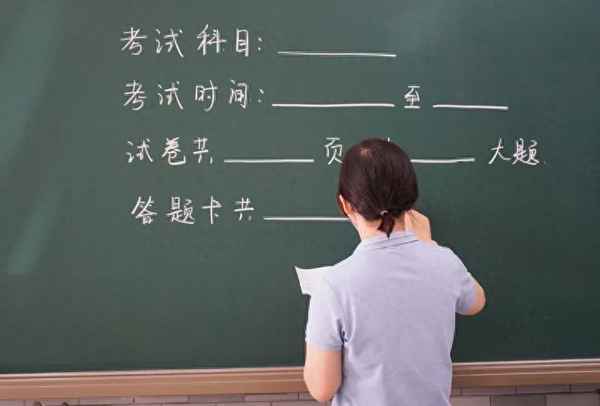 考试科目:______
考试时间:______至____
试卷共_____页 ____大题
答题卡共____